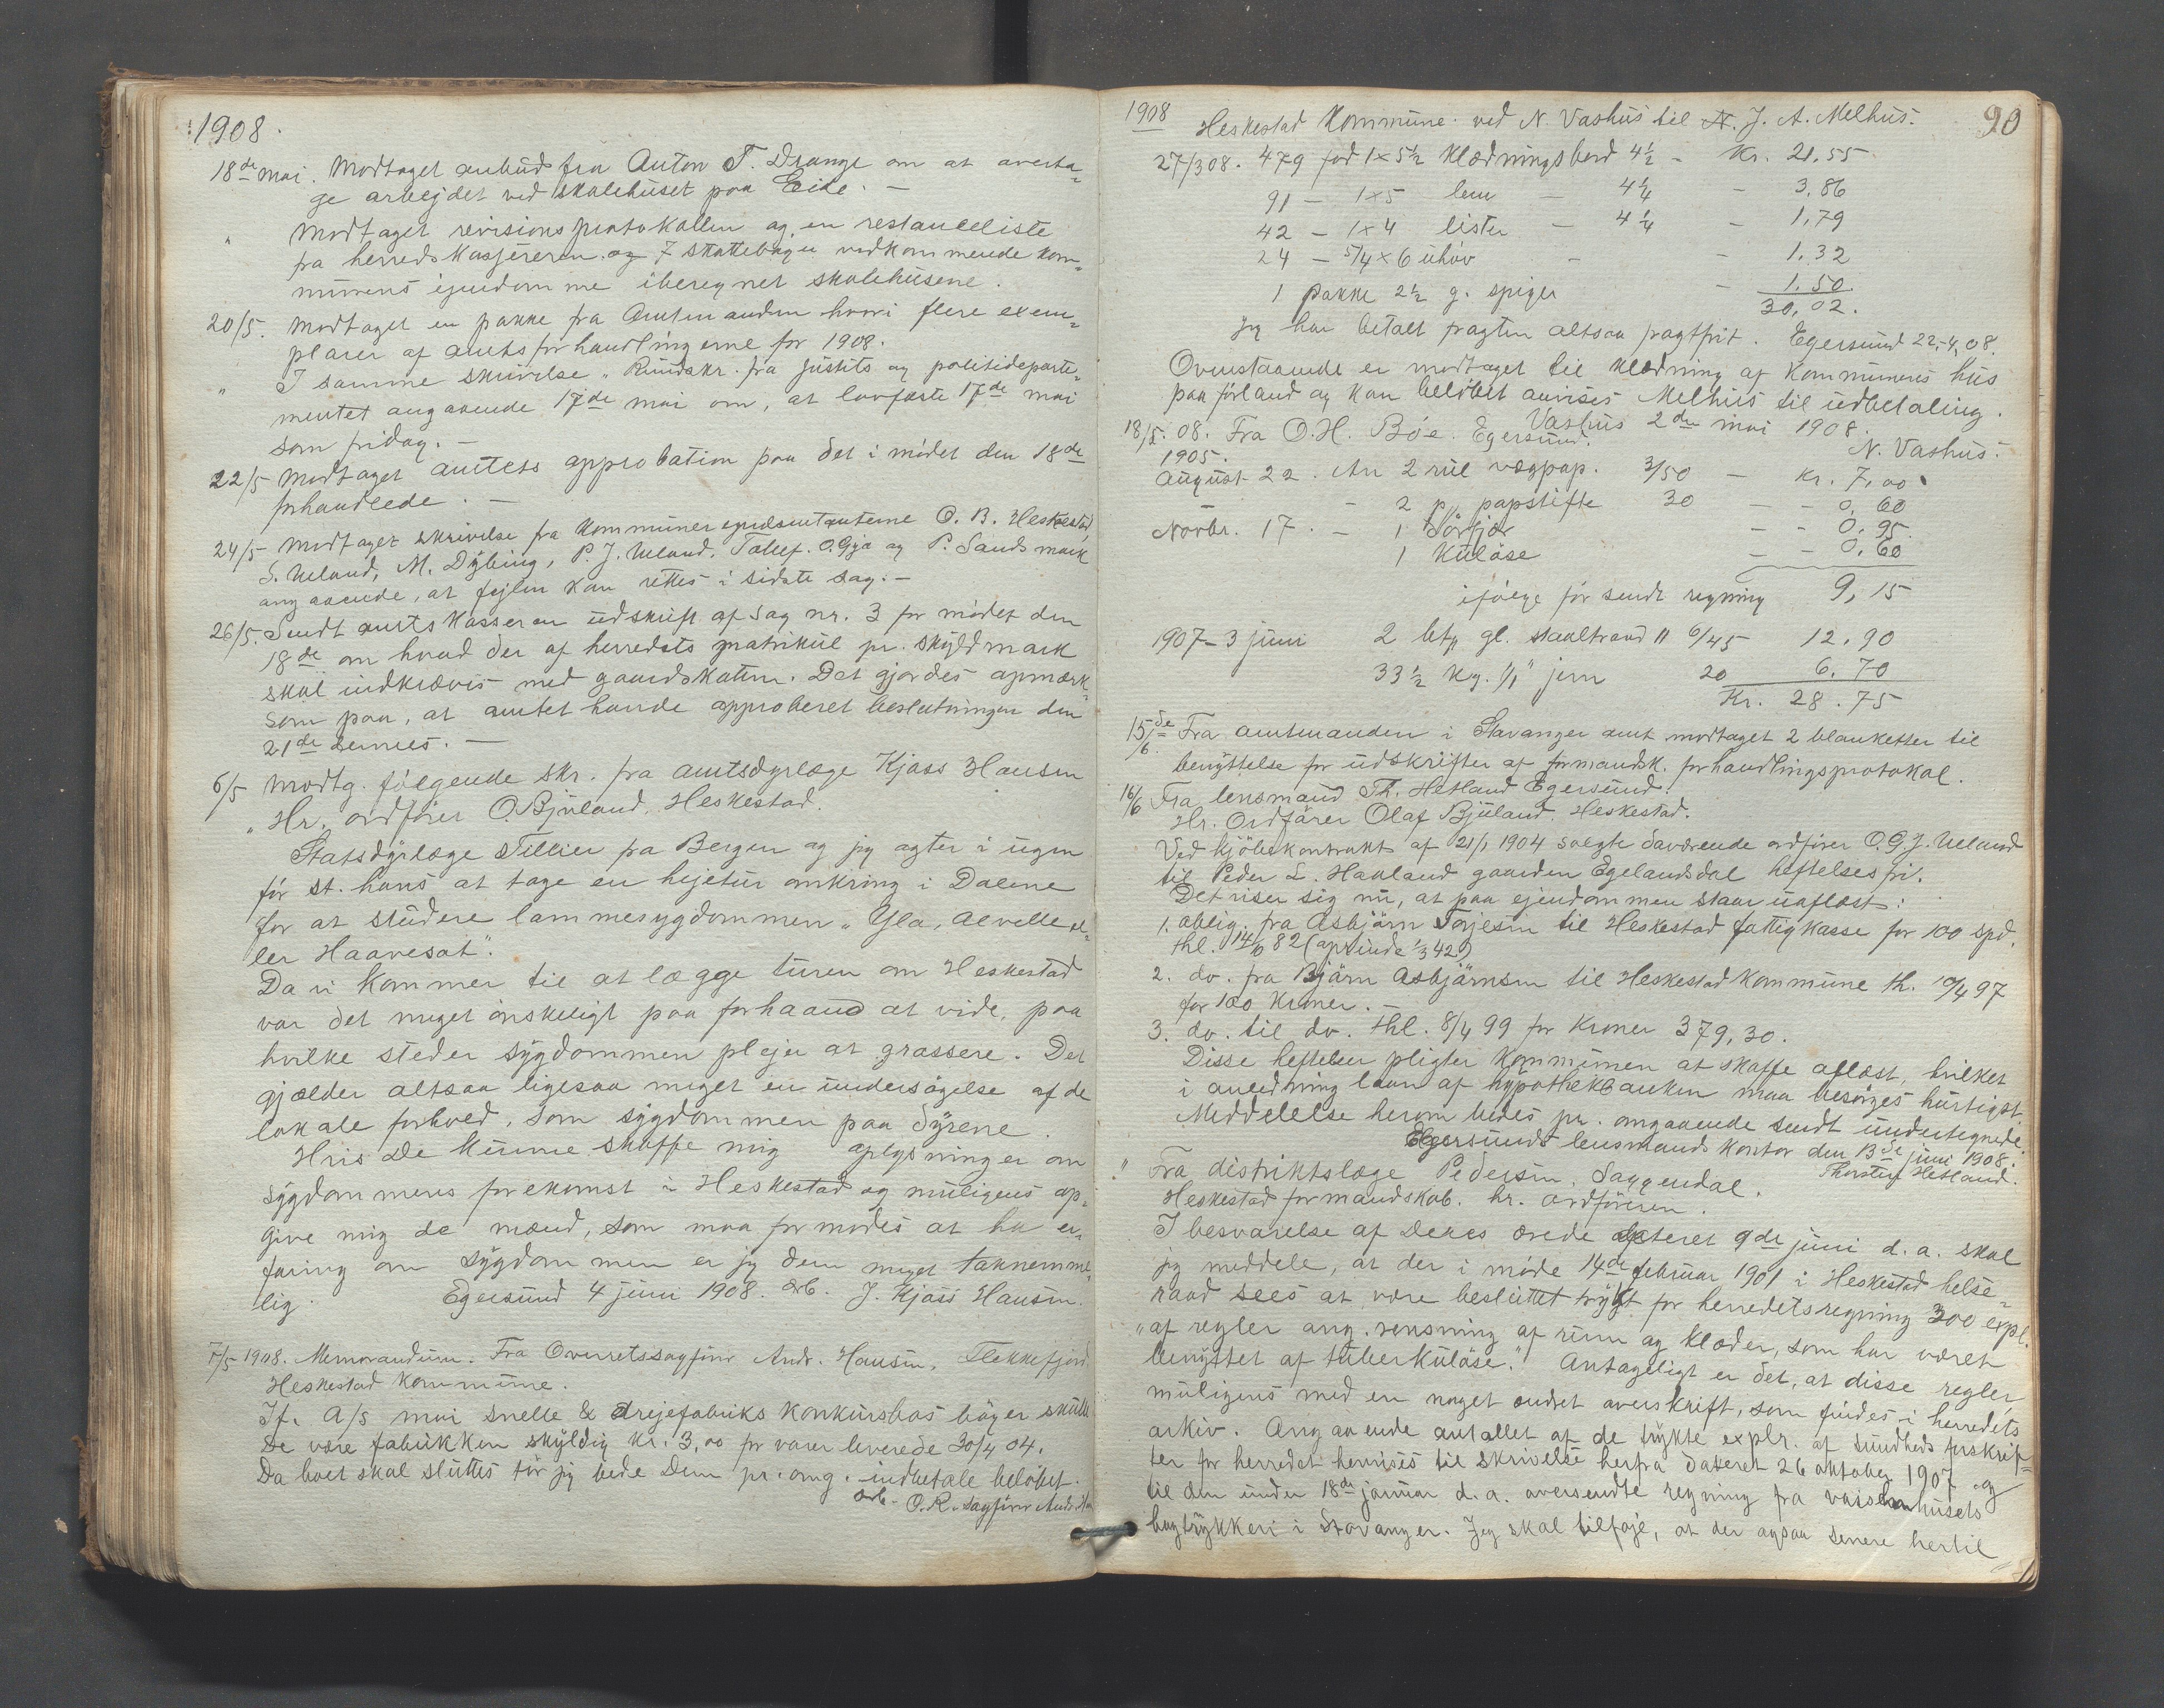 1908.
18de mai. Modtaget anbud fra Anton T. Drange om at overta-
ge arbejdet ved skolehuset paa Eide. —
" Modtaget revisionsprotokollen og en restanceliste
fra herredskasjereren og 7 skattebøger vedkommende kom-
munens ejendomme iberegnet skolehusene.
20/5. Modtaget en pakke fra Amtmanden hvori flere exem-
plarer af amtsforhandlingerne for 1908.
" I samme skrivelse, Rundskr. fra justits og politideparte-
mentet angaaende 17de mai om, at lovfæste 17de mai
som fridag. —
22/5 Modtaget amtets approbation paa det i mødet den 18de
forhandlede. —
24/5 Modtaget skrivelse fra kommunerepræsentanterne O. B. Heskestad,
S. Ueland, M. Dybing, P. J. Ueland, Tollef. O. Gya og P. Sandsmark
angaaende, at fejlen kan rettes i sidste sag. —
26/5. Sendt amtskasseren udskrift af sag nr. 3 for mødet den
18de om hvad der af herredets matrikul pr. skyldmark
skal indkræves med gaardskatten. Det gjordes opmærk-
som paa, at amtet havde approberet beslutningen den
21de dennes. —
6/5 Modtg. følgende skr. fra amtsdyrlæge Kjøss Hansen
" Hr. ordfører O. Bjuland, Heskestad.
Statsdyrlæge Tillier fra Bergen og jeg agter i ugen
før st. hans at tage en hejetur omkring i Dalene
for at studere lammesygdommen „Yla, Alvelle el-
ler Haavesot".
Da vi kommer til at lægge turen om Heskestad
var det meget ønskeligt paa forhaand at vide, paa
hvilke steder sygdommen plejer at grassere. Det
gjælder altsaa ligesaa meget en undersøgelse af de
lokale forhold, som sygdommen paa dyrene.
Hvis De kunne skaffe mig oplysninger om
sygdommens forekomst i Heskestad og muligens op-
give mig de mænd, som maa formodes at ha er-
faring om sygdommen er jeg dem meget taknemme-
lig. Egersund 4 juni 1908. Ærb. J. Kjøss Hansen.
7/5 1908. Memorandum. Fra Overretssagfører Andr. Hansen, Flekkefjord
Heskestad kommune.
If. A/S moi snelle & drejefabriks konkursbos bøger skulle
De være fabrikken skyldig kr. 3,00 for varer leverede 30/4 04.
Da boet skal sluttes tør jeg bede Dem pr. omg. indbetale beløbet.
Ærb. O.R. sagfører Andr. Ha
1908 Heskestad Kommune ved N. Vashus til J. A. Melhus. 90
27/3 08. 479 fod 1×5½ klædningsbord 4½ - Kr. 21,55
91 - 1×5 lem - 4¼ - 3,86
42 - 1×4 lister - 4¼ - 1,79
24 - 5/4×6 uhøv - - 1,32
1 pakke 2½ g. spiger - 1,50
30,02.
Jeg har betalt fragten altsaa fragtfrit. Egersund 22-4,08.
Ovenstaaende er modtaget til klædning af kommunens hus
paa førland og kan beløbet anvises Melhus til udbetaling.
Vashus 2den mai 1908.
N. Vashus.
18/5. 08. Fra O. H. Bøe. Egersund.
1905.
August 22. An 2 rul vægpap. 3/50 — Kr. 7,00
- 2 p. papstifte 30 — - 0,60
Novbr. 17. - 1 dørfjær - - 0,95
1 Kulöse — - 0,60
ifølge før sendt regning 9,15
1907 - 3 juni 2 btg gl. staaltraad 11 6/45 12.90
33½ kg. 1/1" jern 20 6.70
Kr. 28.75
15de/6. Fra amtmanden i Stavanger amt modtaget 2 blanketter til
benyttelse for udskrifter af formandsk. forhandlingsprotokol.
16/6 Fra lensmand Th. Hetland Egersund.
Hr. Ordfører Olaf Bjuland, Heskestad.
Ved kjøbekontrakt af 21/1 1904 solgte daværende ordfører O. G. J. Ueland
til Peder L. Haaland gaarden Egelandsdal heftelsesfri.
Det viser sig nu, at paa ejendommen staar uaflæst:
1. oblig. fra Asbjørn Torjesen til Heskestad fattigkasse for 100 spd.
thl. 14/6 82 (oprinde 1/3 42.)
2. do. fra Bjørn Asbjørnsen til Heskestad kommune th. 10/4 97
for 100 kroner. —
3. do. til do. thl. 8/4 99 for kroner 379,30.
Disse heftelser pligter kommunen at skaffe aflæst, hvilket
i anledning laan af hypothekbanken maa besørges hurtigst.
Meddelelse herom bedes pr. omgaaende sendt undertegnede.
Egersunds lensmands kontor den 13de juni 1908.
Thorsten Hetland.
" Fra distriktslæge Pedersen. Soggendal.
Heskestad formandskab. hr. ordføreren.
I besvarelse af Deres ærede dateret 9de juni d. a. skal
jeg meddele, at der i møde 14de februar 1901 i Heskestad helse-
raad sees at være besluttet trykt for herredets regning 300 expl.
„af regler ang. rensning af rum og klæder, som har været
benyttet af tuberkuløse." Antageligt er det, at disse regler
muligens med en noget endret overskrift, som findes i herredets
arkiv. Angaaende antallet af de trykte explr. af sundhedsforskrif-
ter for herredet henvises til skrivelse herfra dateret 26 oktober 1907 og
til den under 18de januar d. a. oversendte regning fra vaisenhusets
bogtrykkeri i Stavanger. Jeg skal tilføje, at der ogsaa senere hertil